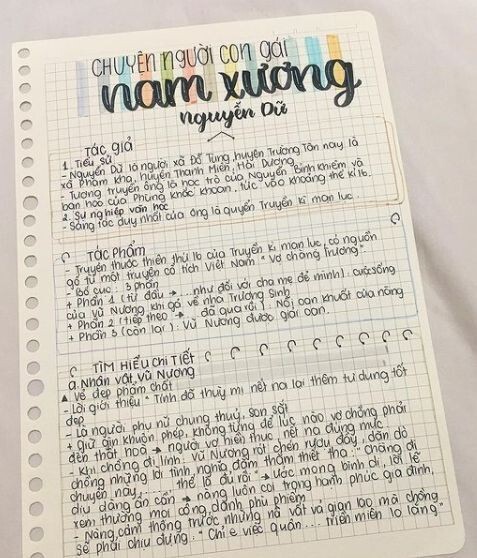 CHUYỆN NGƯỜI CON GÁI
NAM XƯƠNG
NGUYỄN DỮ
TÁC GIẢ
1. Tiểu sử
- Nguyễn Dữ là người xã Đỗ Tùng, huyện Trường Tân nay là
xã Phạm Kha, huyện Thanh Miện, Hải Dương.
- Tương truyền ông là học trò của Nguyễn Bỉnh Khiêm và
bạn học của Phùng Khắc Khoan, tức vào khoảng thế kỉ 16.
2. Sự nghiệp văn học
- Sáng tác duy nhất của ông là quyển Truyền kì mạn lục.
TÁC PHẨM
- Truyện thuộc thiên thứ 16 của Truyền kì mạn lục, có nguồn
gố từ một truyện cổ tích Việt Nam "Vợ chàng Trương"
- Bố cục: 3 phần
+ Phần 1 (từ đầu → ... như đối với cha mẹ đẻ mình): cuộc sống
của Vũ Nương khi gả về nhà Trương Sinh
+ Phần 2 (tiếp theo → ... đã qua rồi): Nỗi oan khuất của nàng
+ Phần 3 (còn lại): Vũ Nương được giải oan.
TÌM HIỂU CHI TIẾT
a. Nhân vật Vũ Nương
▲ Vẻ đẹp phẩm chất
- Lời giới thiệu "Tính đã thuỳ mị nết na lại thêm tư dung tốt
đẹp
- Là người phụ nữ chung thuỷ, son sắt
+ Giữ gìn khuôn phép, không từng để lúc nào vợ chồng phải
đến thất hoà → người vợ hiền thục, nết na đúng mực
- Khi chồng đi lính: Vũ Nương rót chén rượu đầy, dặn dò
chồng những lời tình nghĩa đằm thắm thiết tha: "Chàng đi
chuyến này,... thế là đủ rồi" → ước mong bình dị, lời lẽ
dịu dàng ân cần → nàng luôn coi trọng hạnh phúc gia đình,
xem thường mọi công danh phù phiếm
- Nàng cảm thông trước những nỗi vất vả gian lao mà chồng
sẽ phải chịu đựng: "Chỉ e việc quân... triền miên lo lắng"